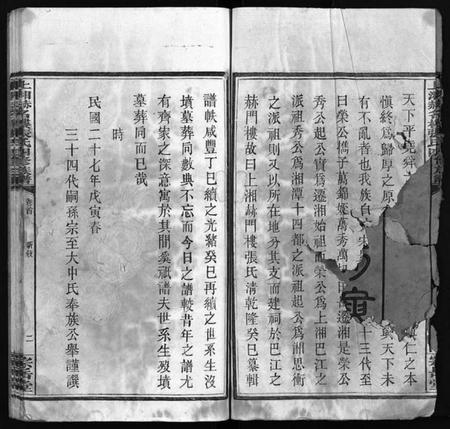 天下平堯舜
仁之本
慎終為歸厚之原
與天下未
有不亂者也我族自
十三代至
曰榮公懽子萬錦姪萬秀萬
遷湘是榮公
秀公起公實為遷湘始祖而榮公為上湘巴江之
派祖秀公為湘潭十四都之派祖起公為湘思衡
之派祖則又以所在地分其支而建祠於巴江之
赫門樓故曰上湘赫門樓張氏清乾隆癸巳纂輯
寅
譜帙咸豐丁巳續之光緒癸巳再續之世系生沒
墳墓葬同數典不忘而今日之譜較昔年之譜尤
有齊家之深意寓於其間奚祇譜夫世系生歿墳
墓葬同而已哉
時
民國二十七年戊寅春
三十四代嗣孫宗至大中氏奉族公舉謹譔
卷首
二